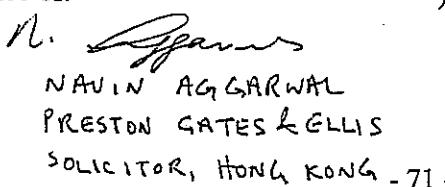 N. Aggarwal
NAVIN AGGARWAL
PRESTON GATES & ELLIS
SOLICITOR, HONG KONG - 71 -